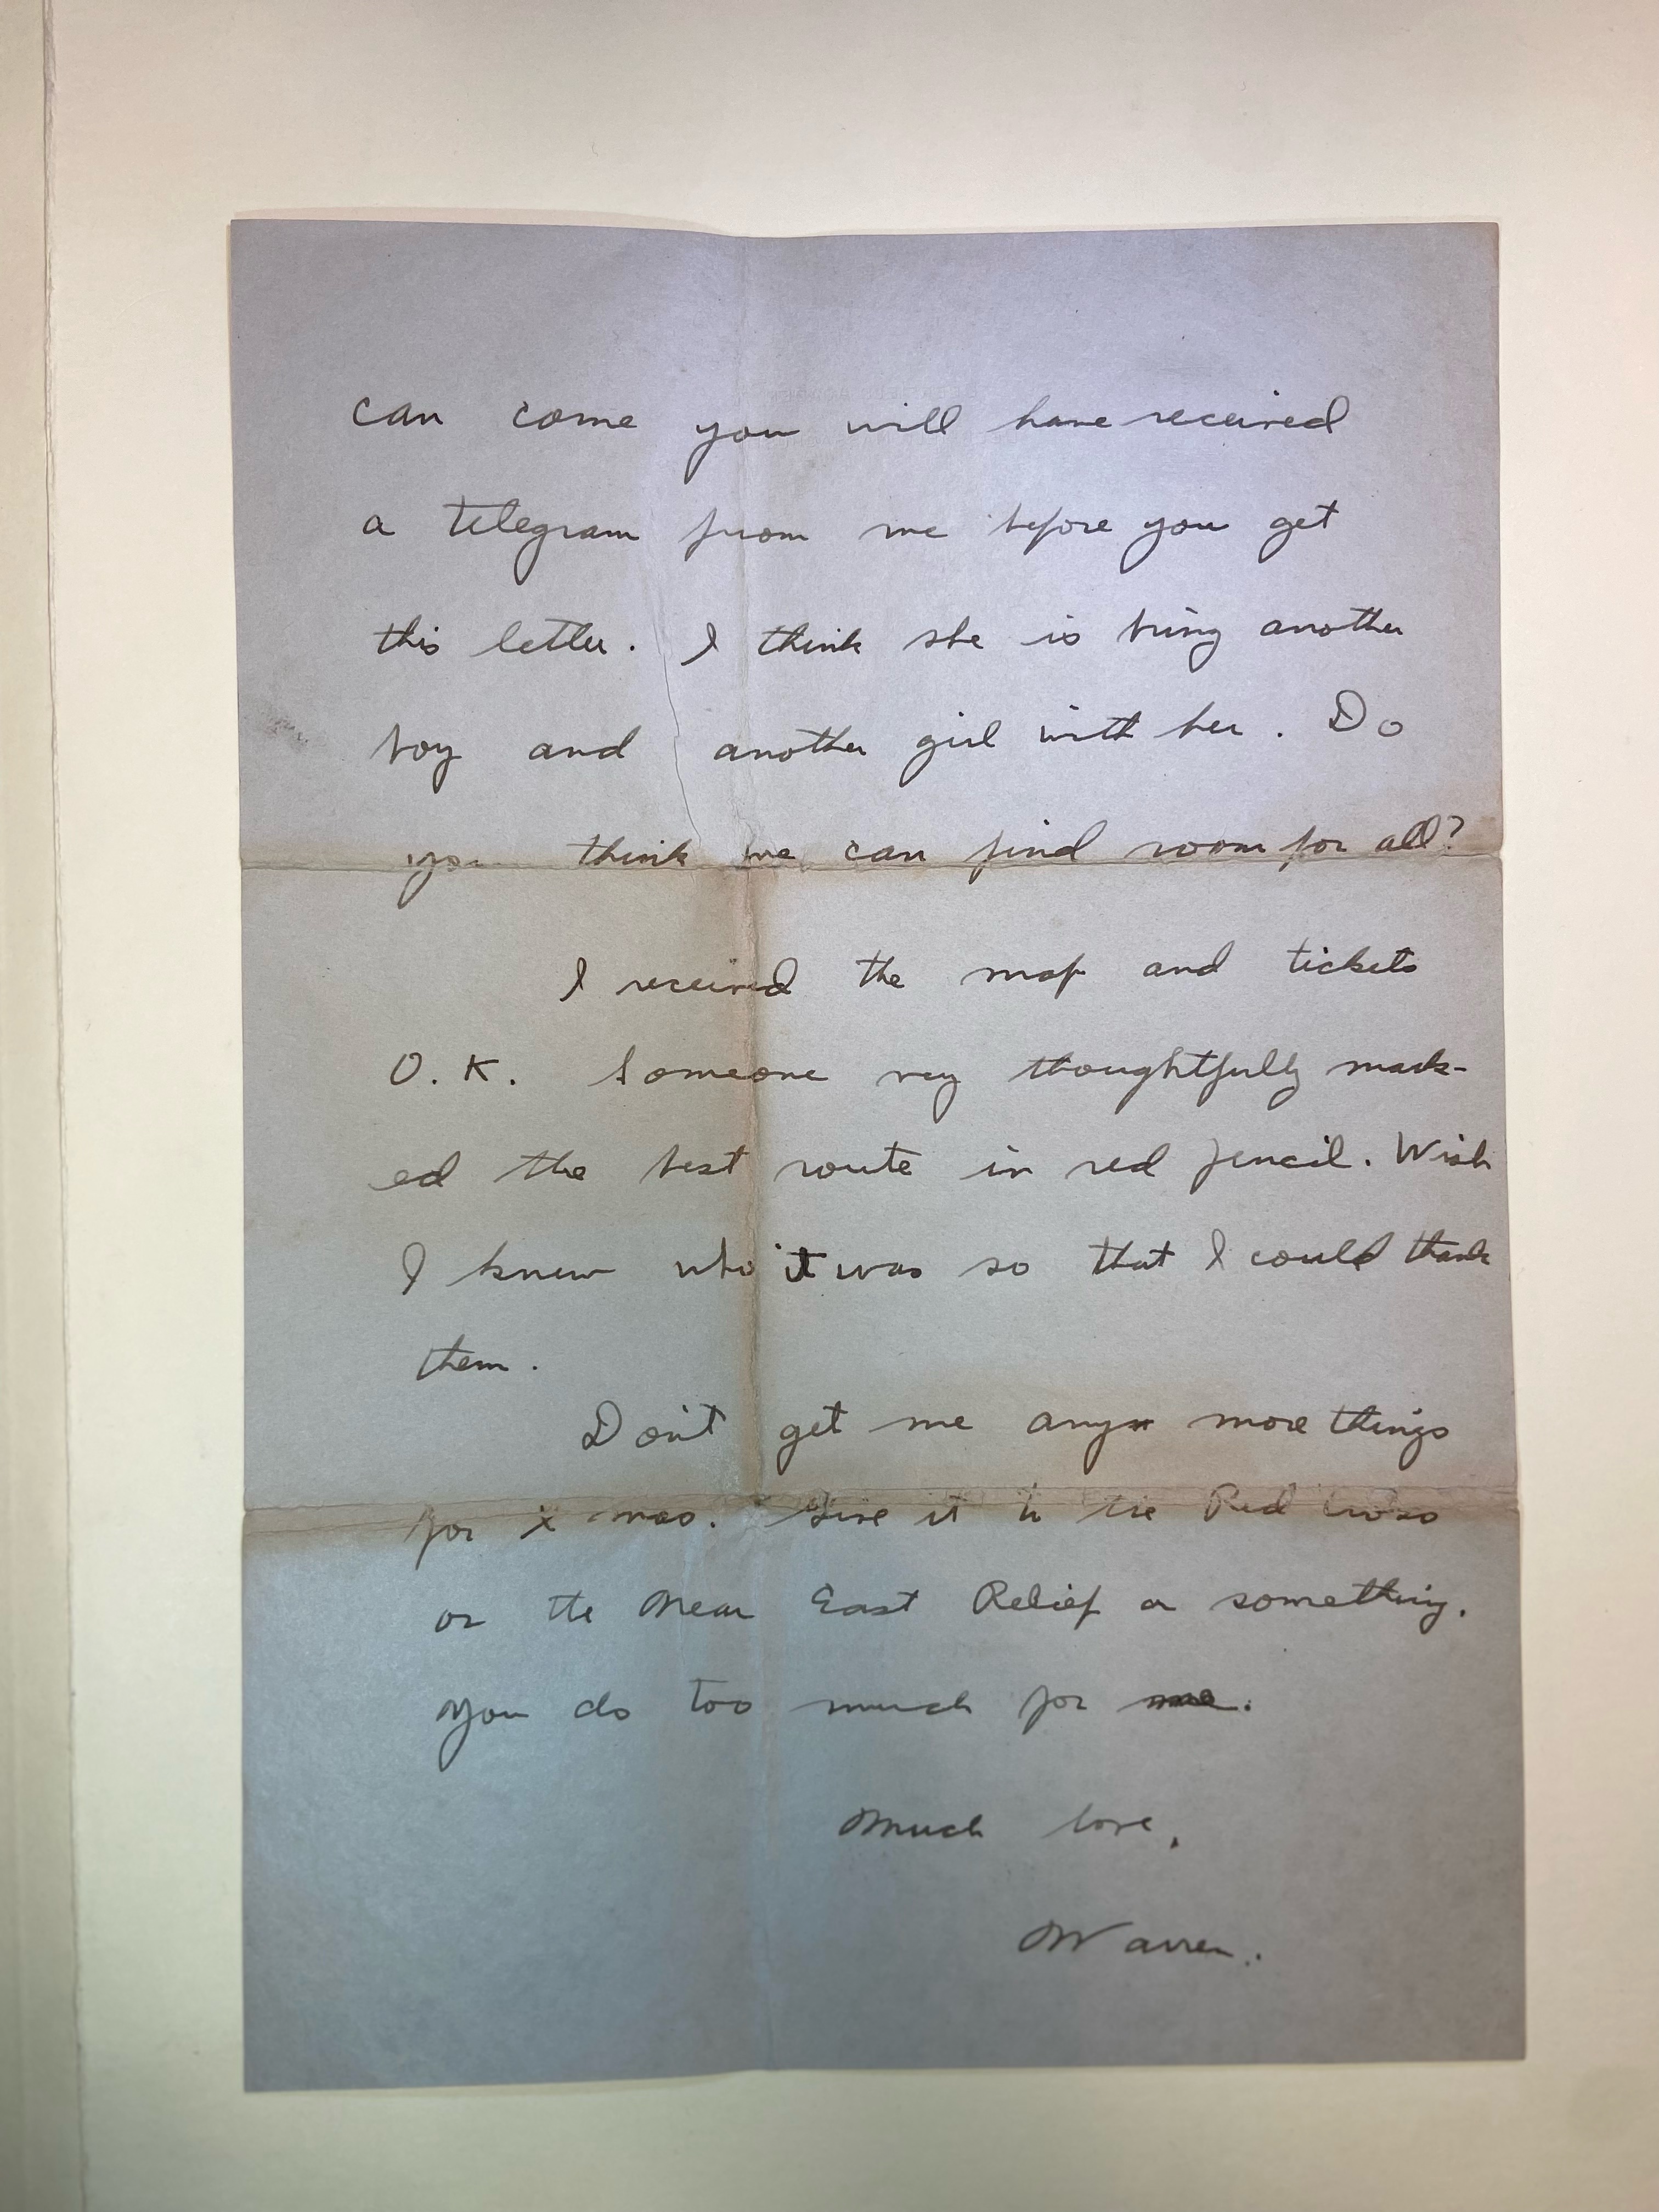 can come you will have received
a telegram from me before you get
this letter. I think she is bring another
boy and another girl with her. Do
you think we can find room for all?
I received the map and tickets
O.K. Someone very thoughtfully mark-
ed the best route in red pencil. Wish
I knew who it was so that I could thank
them.
Don't get me any more things
for x mas. Give it to the Red Cross
or the Near East Relief or something.
You do too much for me.
Much love,
Warren.